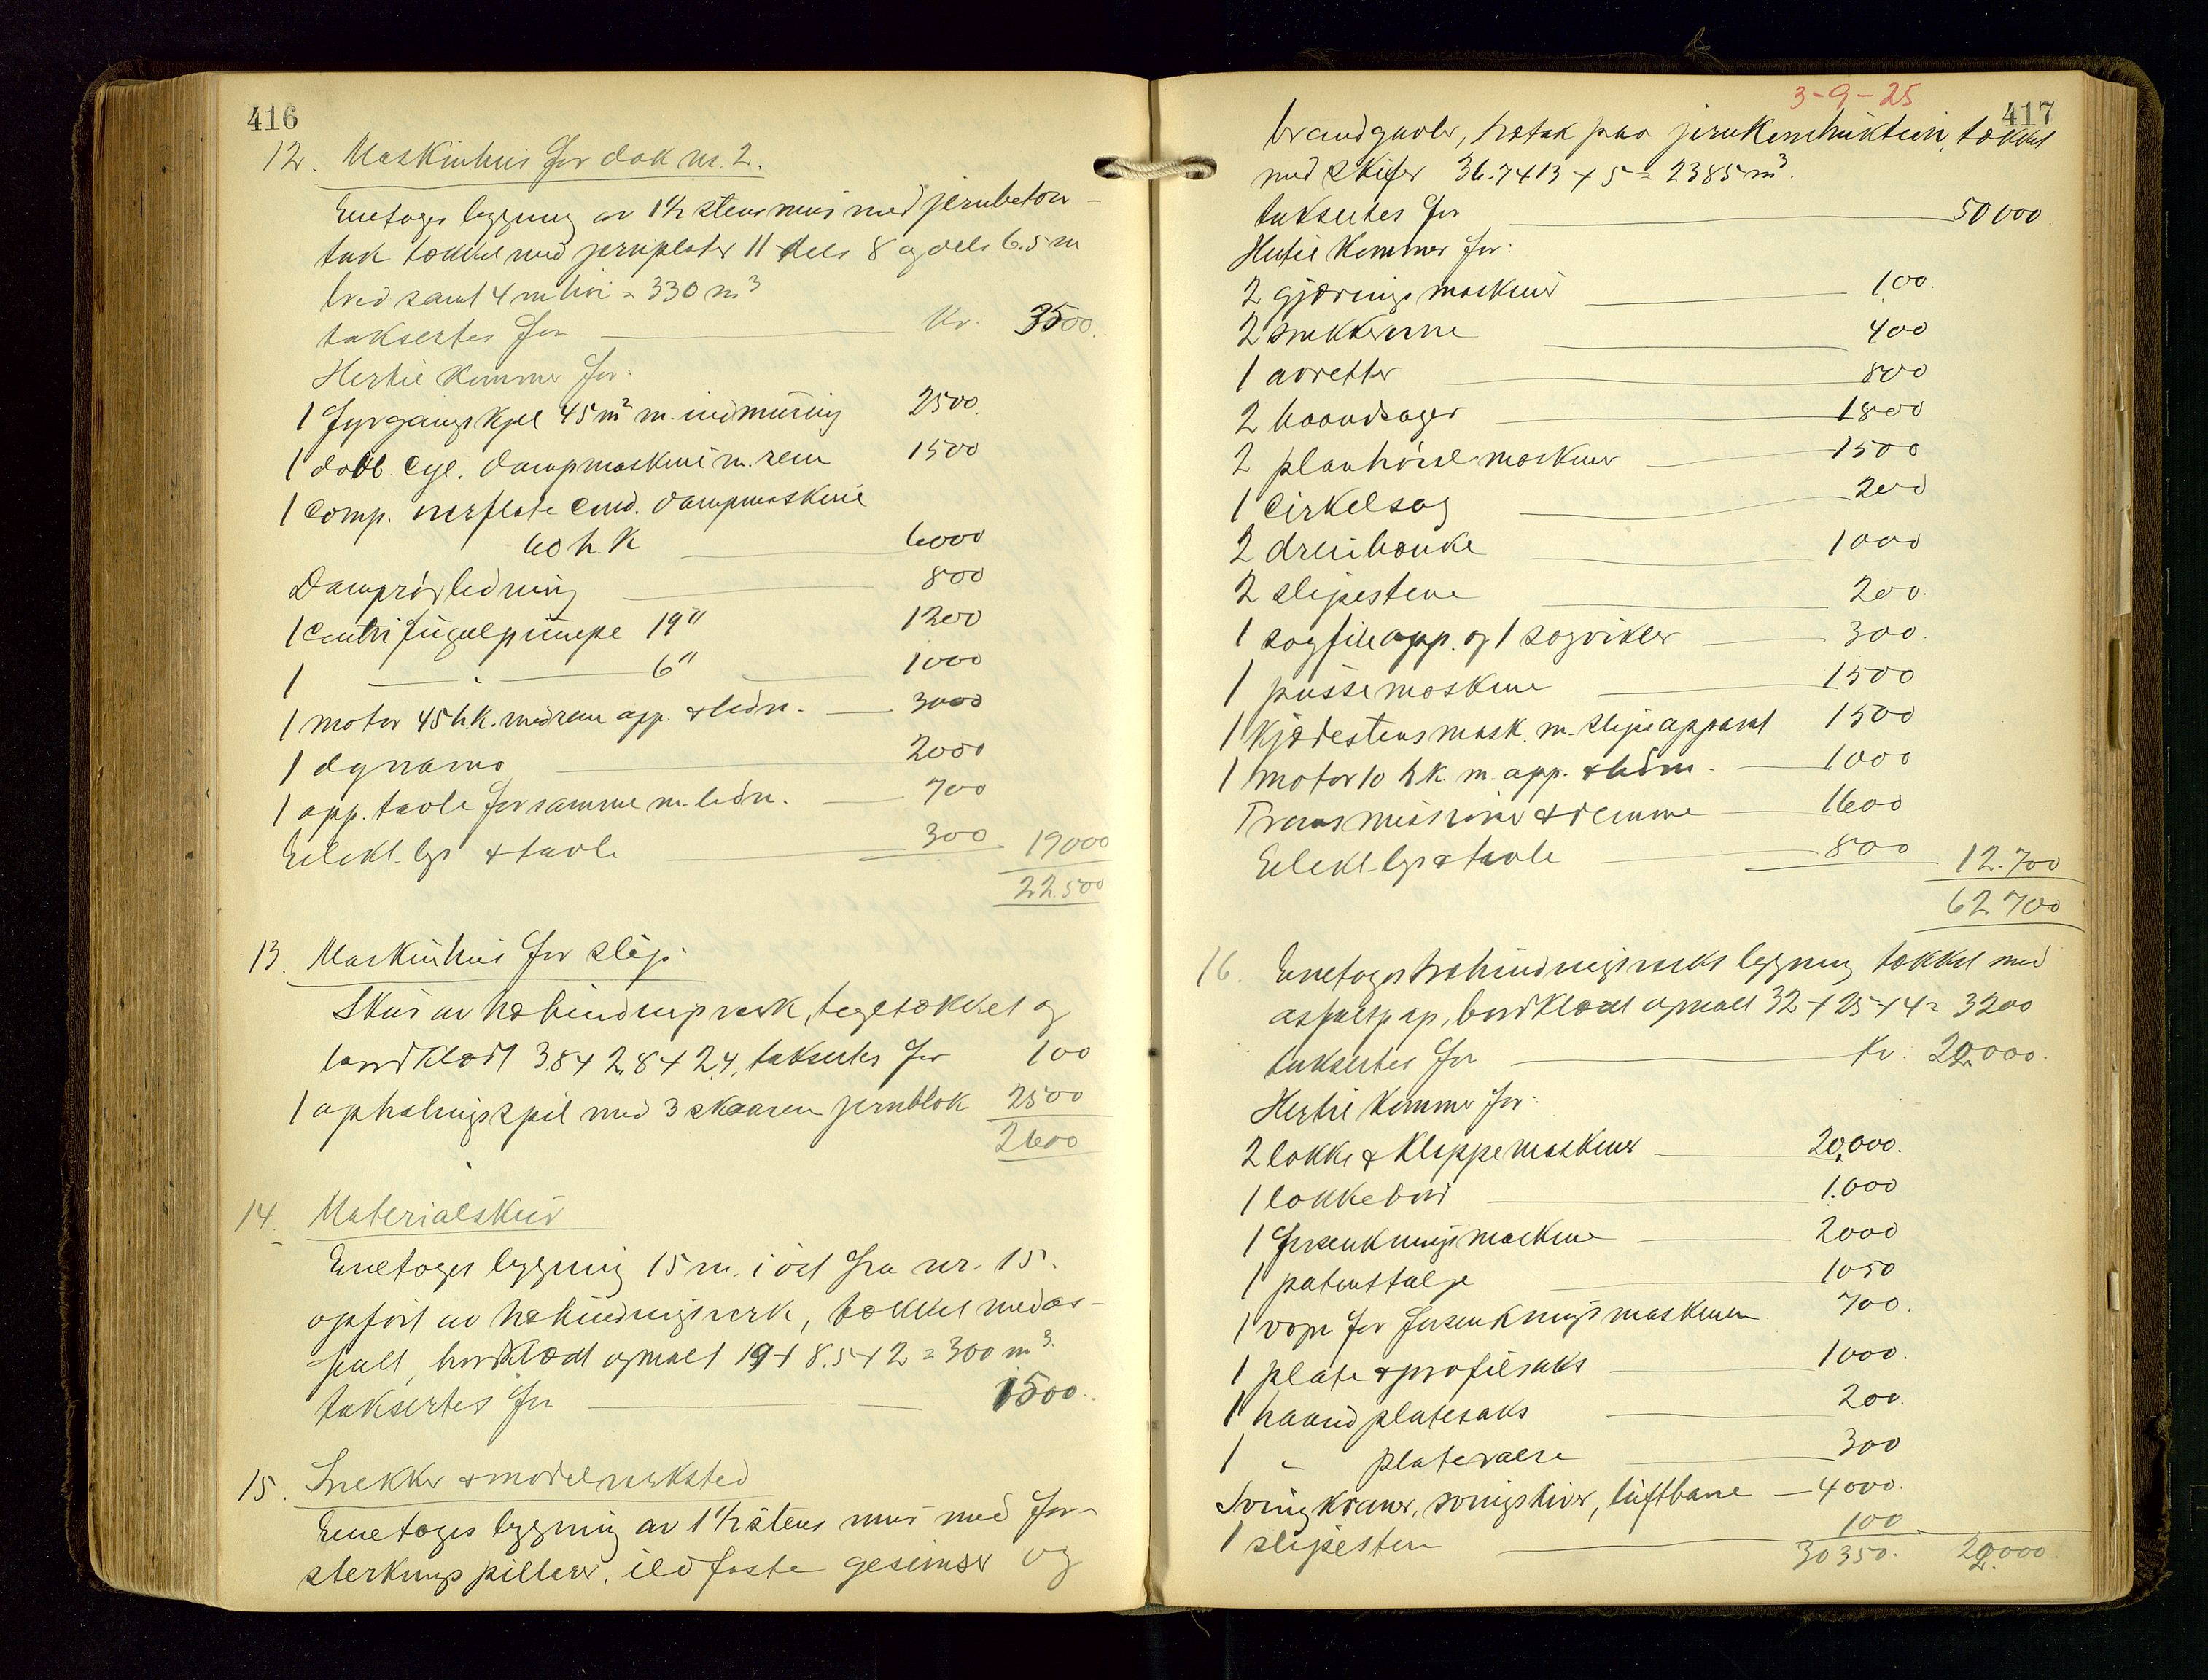 416
12. Maskinhus for dok nr. 2.
Enetages bygning av 1½ stens mur med jernbeton-
tak tækket med jernplater 11 dels 8 og dels 6.5 m
bred samt 4 m høi = 330 m³
taksertes for Kr. 3500.
Hertil kommer for:
1 Fyrgangskjel 45 m² m. indmuring 2500.
1 dobb. cyl. dampmaskine m. rem 1500
1 Comp. overflate cond. dampmaskine
60 h.k 6000
Damprørledning 800
1 Centrifugalpumpe 19" 1200
1 — " — 6" 1000
1 motor 45 h.k. med rem app. & ledn. 3000
1 dynamo 2000
1 app. tavle for samme m. ledn. 700
Elekt. lys & tavle 300 19000
22.500
13. Maskinhus for slip.
Skur av træbindingsverk, tegltækket og
bordklædt 3.8 + 2.8 + 2.4, taksertes for 100
1 ophalingsspil med 3 skaaren jernblok 2500
2600
14. Materialskur
Enetages bygning 15 m. i øst fra nr. 15.
opført av træbindingsverk, tækket med as-
falt, bordklædt opmalt 19 + 8.5 + 2 = 300 m³.
taksertes for 1500.
15. Snekker & modelverksted
Enetages bygning av 1½ stens mur med for-
sterknings pillarer, ildfaste gesimser og
3-9-25
417
brandgavler, trætak paa jernkonstruktion, tækket
med skifer 36.7 + 13 + 5 = 2385 m³.
taksertes for 50000.
Hertil kommer for:
2 gjærings maskiner 100.
2 snekkerovne 400
1 avretter 800
2 baandsager 1800
2 planhøvlmaskiner 1500
1 Cirkelsag 200
2 dreiebænke 1000
2 slipestene 200.
1 sagfileapp. og 1 sagvikler 300.
1 pussemaskine 1500
1 kjædestemsmask. m. slipeapparat 1500
1 motor 10 h.k. m. app. & ledn. 1000
Transmissioner & remme 1600
Elekt. lys & tavle 800 12.700
62700
16. Enetages træbindingsverks bygning tækket med
asfaltpap, bordklædt opmalt 32 + 25 + 4 = 3200
taksertes for Kr. 22.000.
Hertil kommer for:
2 lokke & klippemaskiner 20.000.
1 lokkebord 1.000
1 forsenkningsmaskine 2000
1 patenttalje 1050
1 vogn for forsenkningsmaskinen 700.
1 plate & profilsaks 1000.
1 haandplatesaks 200.
1 " platevalse 300
Svingkraner, svingskiver, luftbane 4000.
1 slipesten 100
30350. 22.000